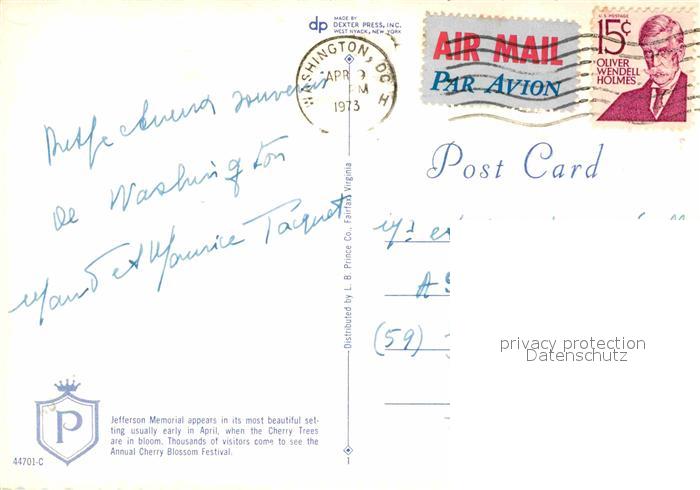 dp MADE BY
DEXTER PRESS, INC.
WEST NYACK, NEW YORK
WASHINGTON, DC
APR 9
PM
1973
AIR MAIL
PAR AVION
U.S. POSTAGE
15¢
OLIVER
WENDELL
HOLMES
Post Card
souvenirs
de Washington
Maud et Maurice Tacquet
(59)
privacy protection
Datenschutz
Distributed by L. B. Prince Co., Fairfax, Virginia
P
Jefferson Memorial appears in its most beautiful set-
ting usually early in April, when the Cherry Trees
are in bloom. Thousands of visitors come to see the
Annual Cherry Blossom Festival.
44701-C
1